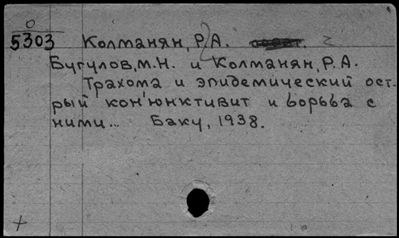 0
5303 Колманян, Р.А.
Бугулов, М.Н. и Колманян, Р.А.
Трахома и эпидемический ост-
рый кон'юнктивит и борьба с
ними... Баку, 1938.